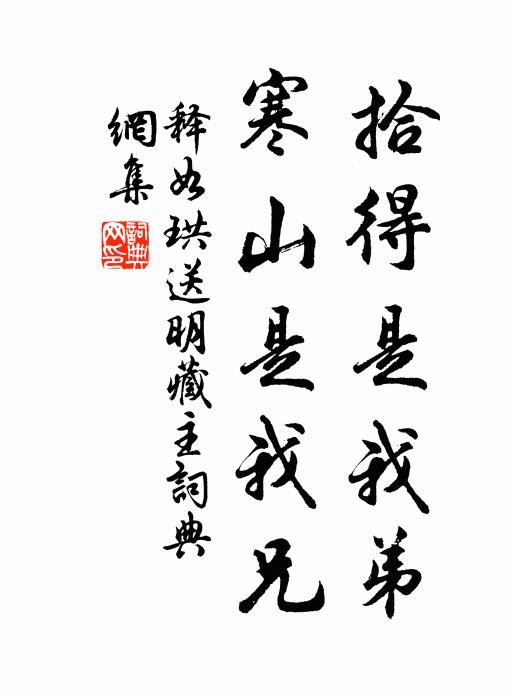 拾得是我弟
寒山是我兄
释如珙送明藏主詞典
網集
詞典
网印